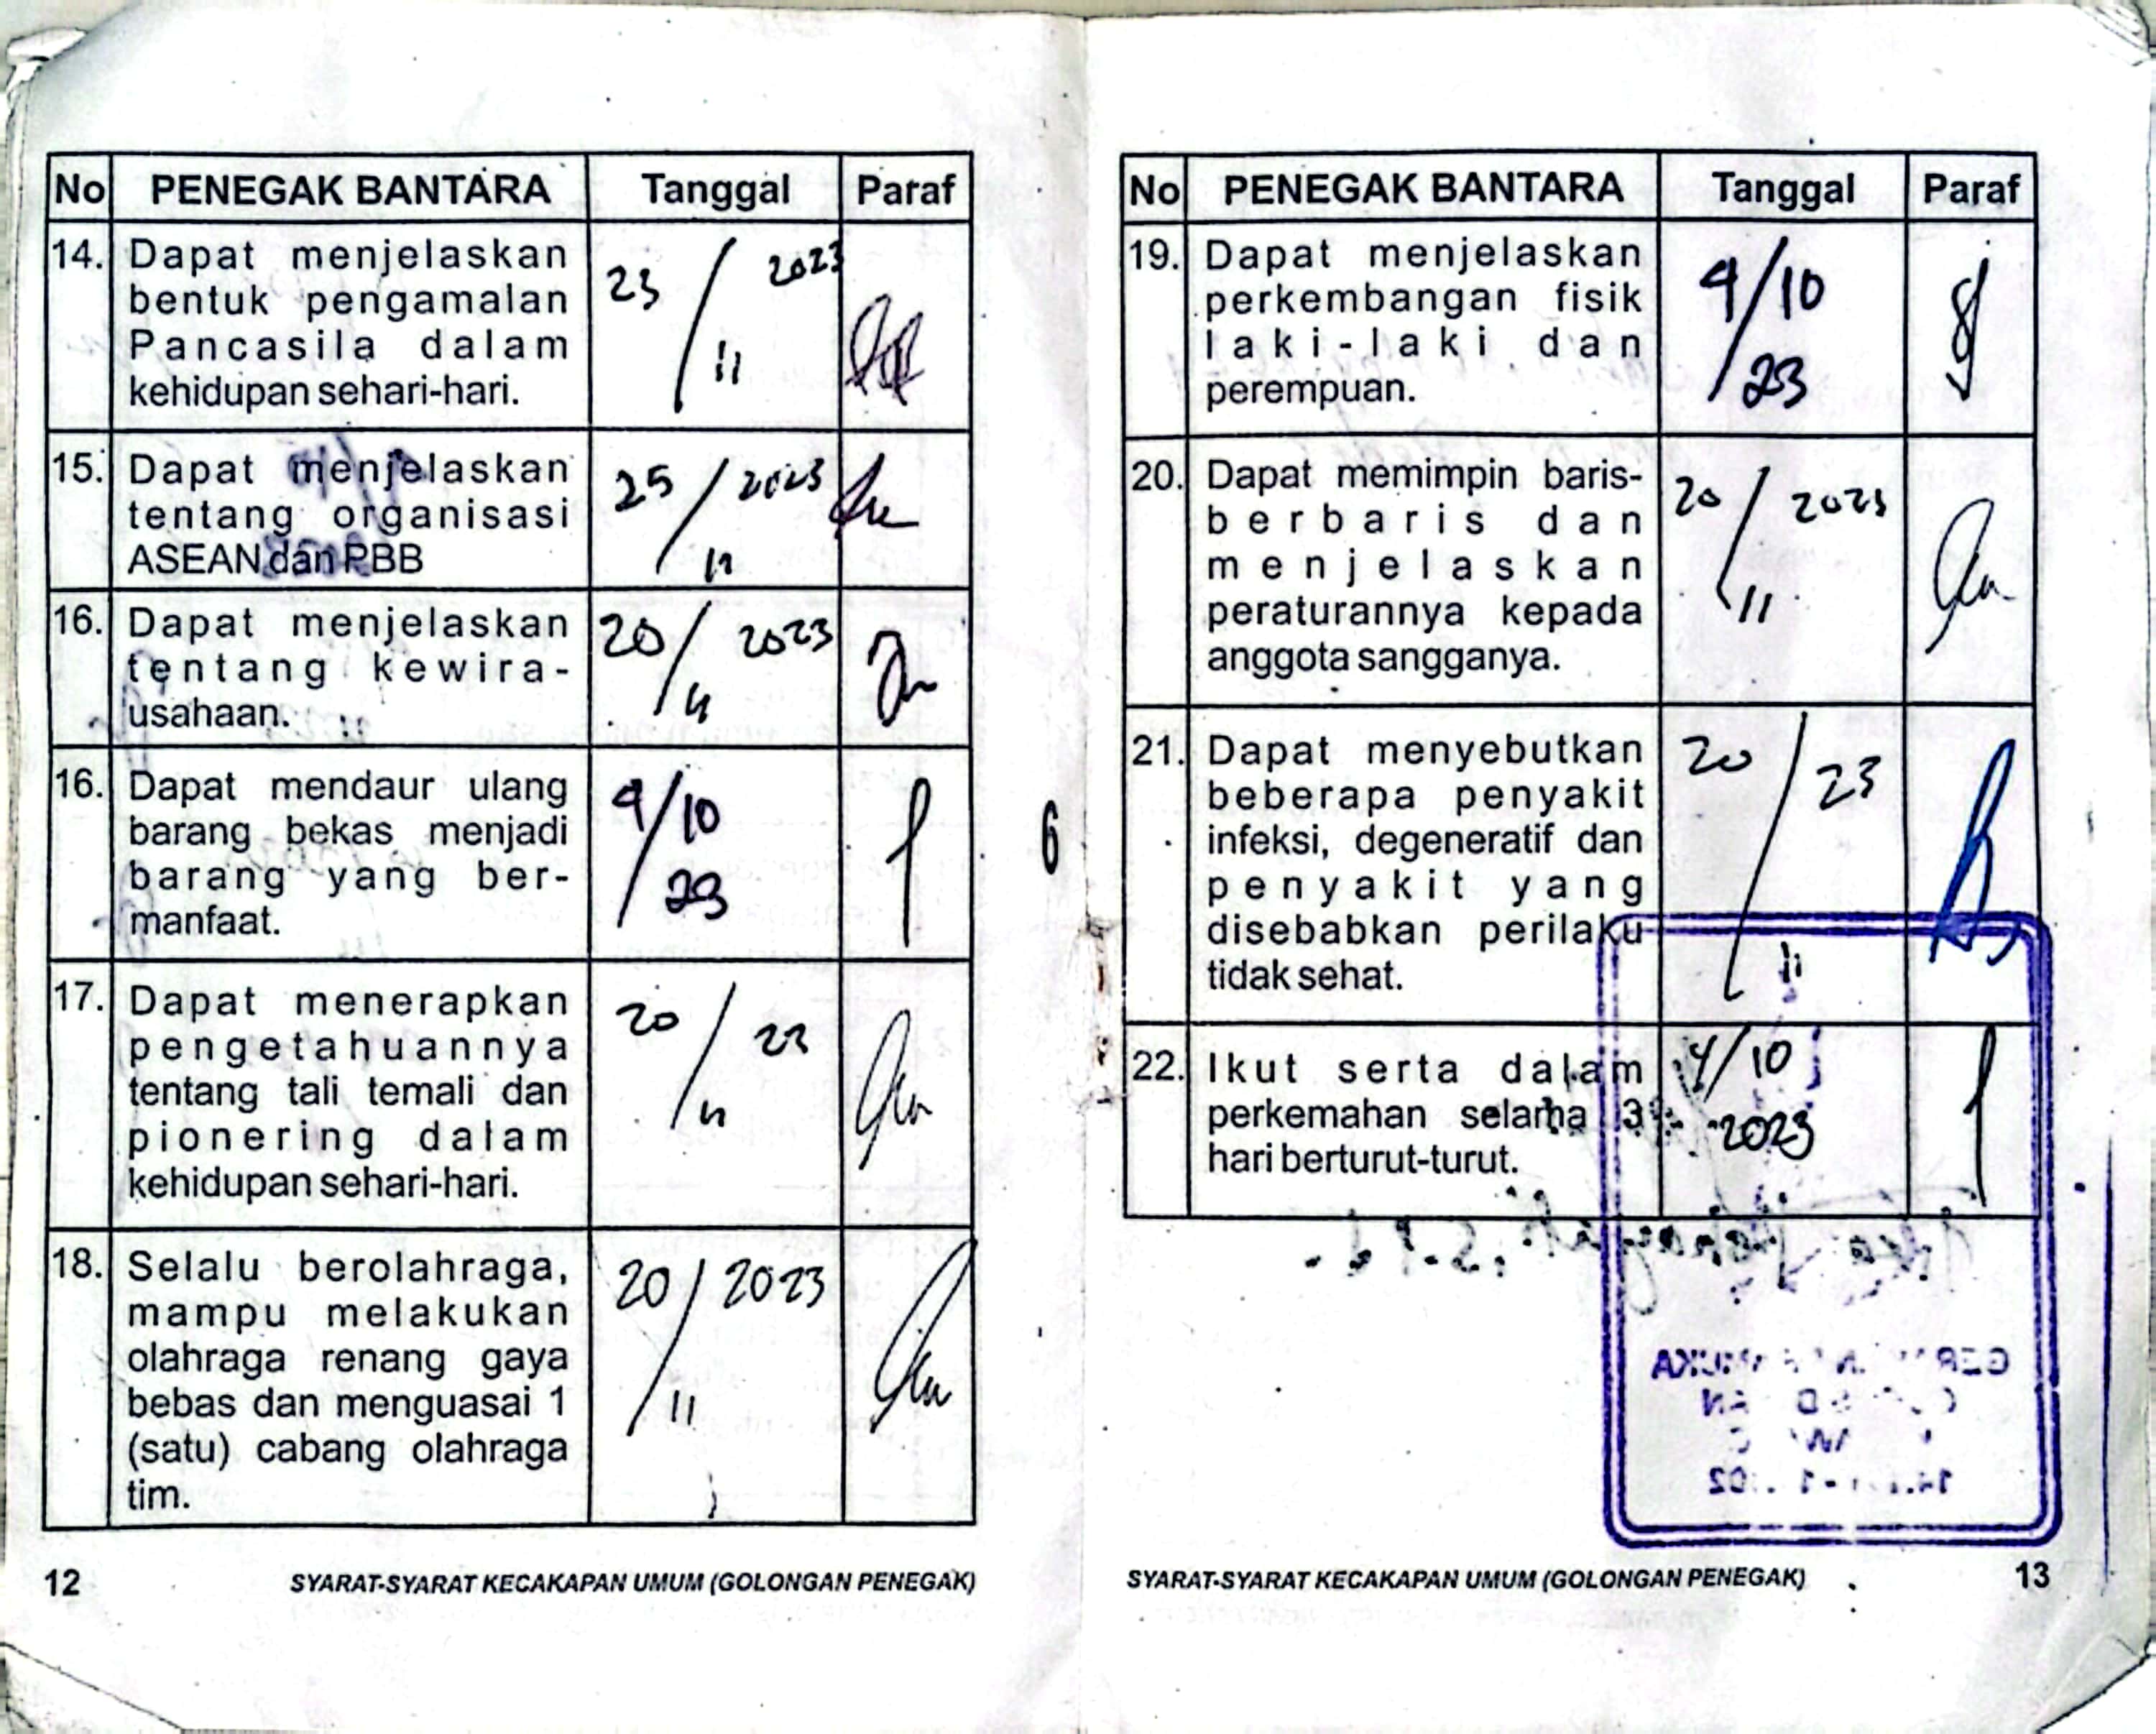 No PENEGAK BANTARA Tanggal Paraf
14. Dapat menjelaskan
bentuk pengamalan
Pancasila dalam
kehidupan sehari-hari.
23 / 2023
11
15. Dapat menjelaskan
tentang organisasi
ASEAN dan PBB
25 / 2023
11
16. Dapat menjelaskan
tentang kewira-
usahaan.
20 / 2023
11
16. Dapat mendaur ulang
barang bekas menjadi
barang yang ber-
manfaat.
9/10
/23
17. Dapat menerapkan
pengetahuannya
tentang tali temali dan
pionering dalam
kehidupan sehari-hari.
20 / 23
11
18. Selalu berolahraga,
mampu melakukan
olahraga renang gaya
bebas dan menguasai 1
(satu) cabang olahraga
tim.
20 / 2023
11
12 SYARAT-SYARAT KECAKAPAN UMUM (GOLONGAN PENEGAK)
6
No PENEGAK BANTARA Tanggal Paraf
19. Dapat menjelaskan
perkembangan fisik
laki-laki dan
perempuan.
9/10
/23
20. Dapat memimpin baris-
berbaris dan
menjelaskan
peraturannya kepada
anggota sangganya.
20 / 2023
11
21. Dapat menyebutkan
beberapa penyakit
infeksi, degeneratif dan
penyakit yang
disebabkan perilaku
tidak sehat.
20 / 23
11
22. Ikut serta dalam
perkemahan selama 3
hari berturut-turut.
9/10
2023
SYARAT-SYARAT KECAKAPAN UMUM (GOLONGAN PENEGAK) 13